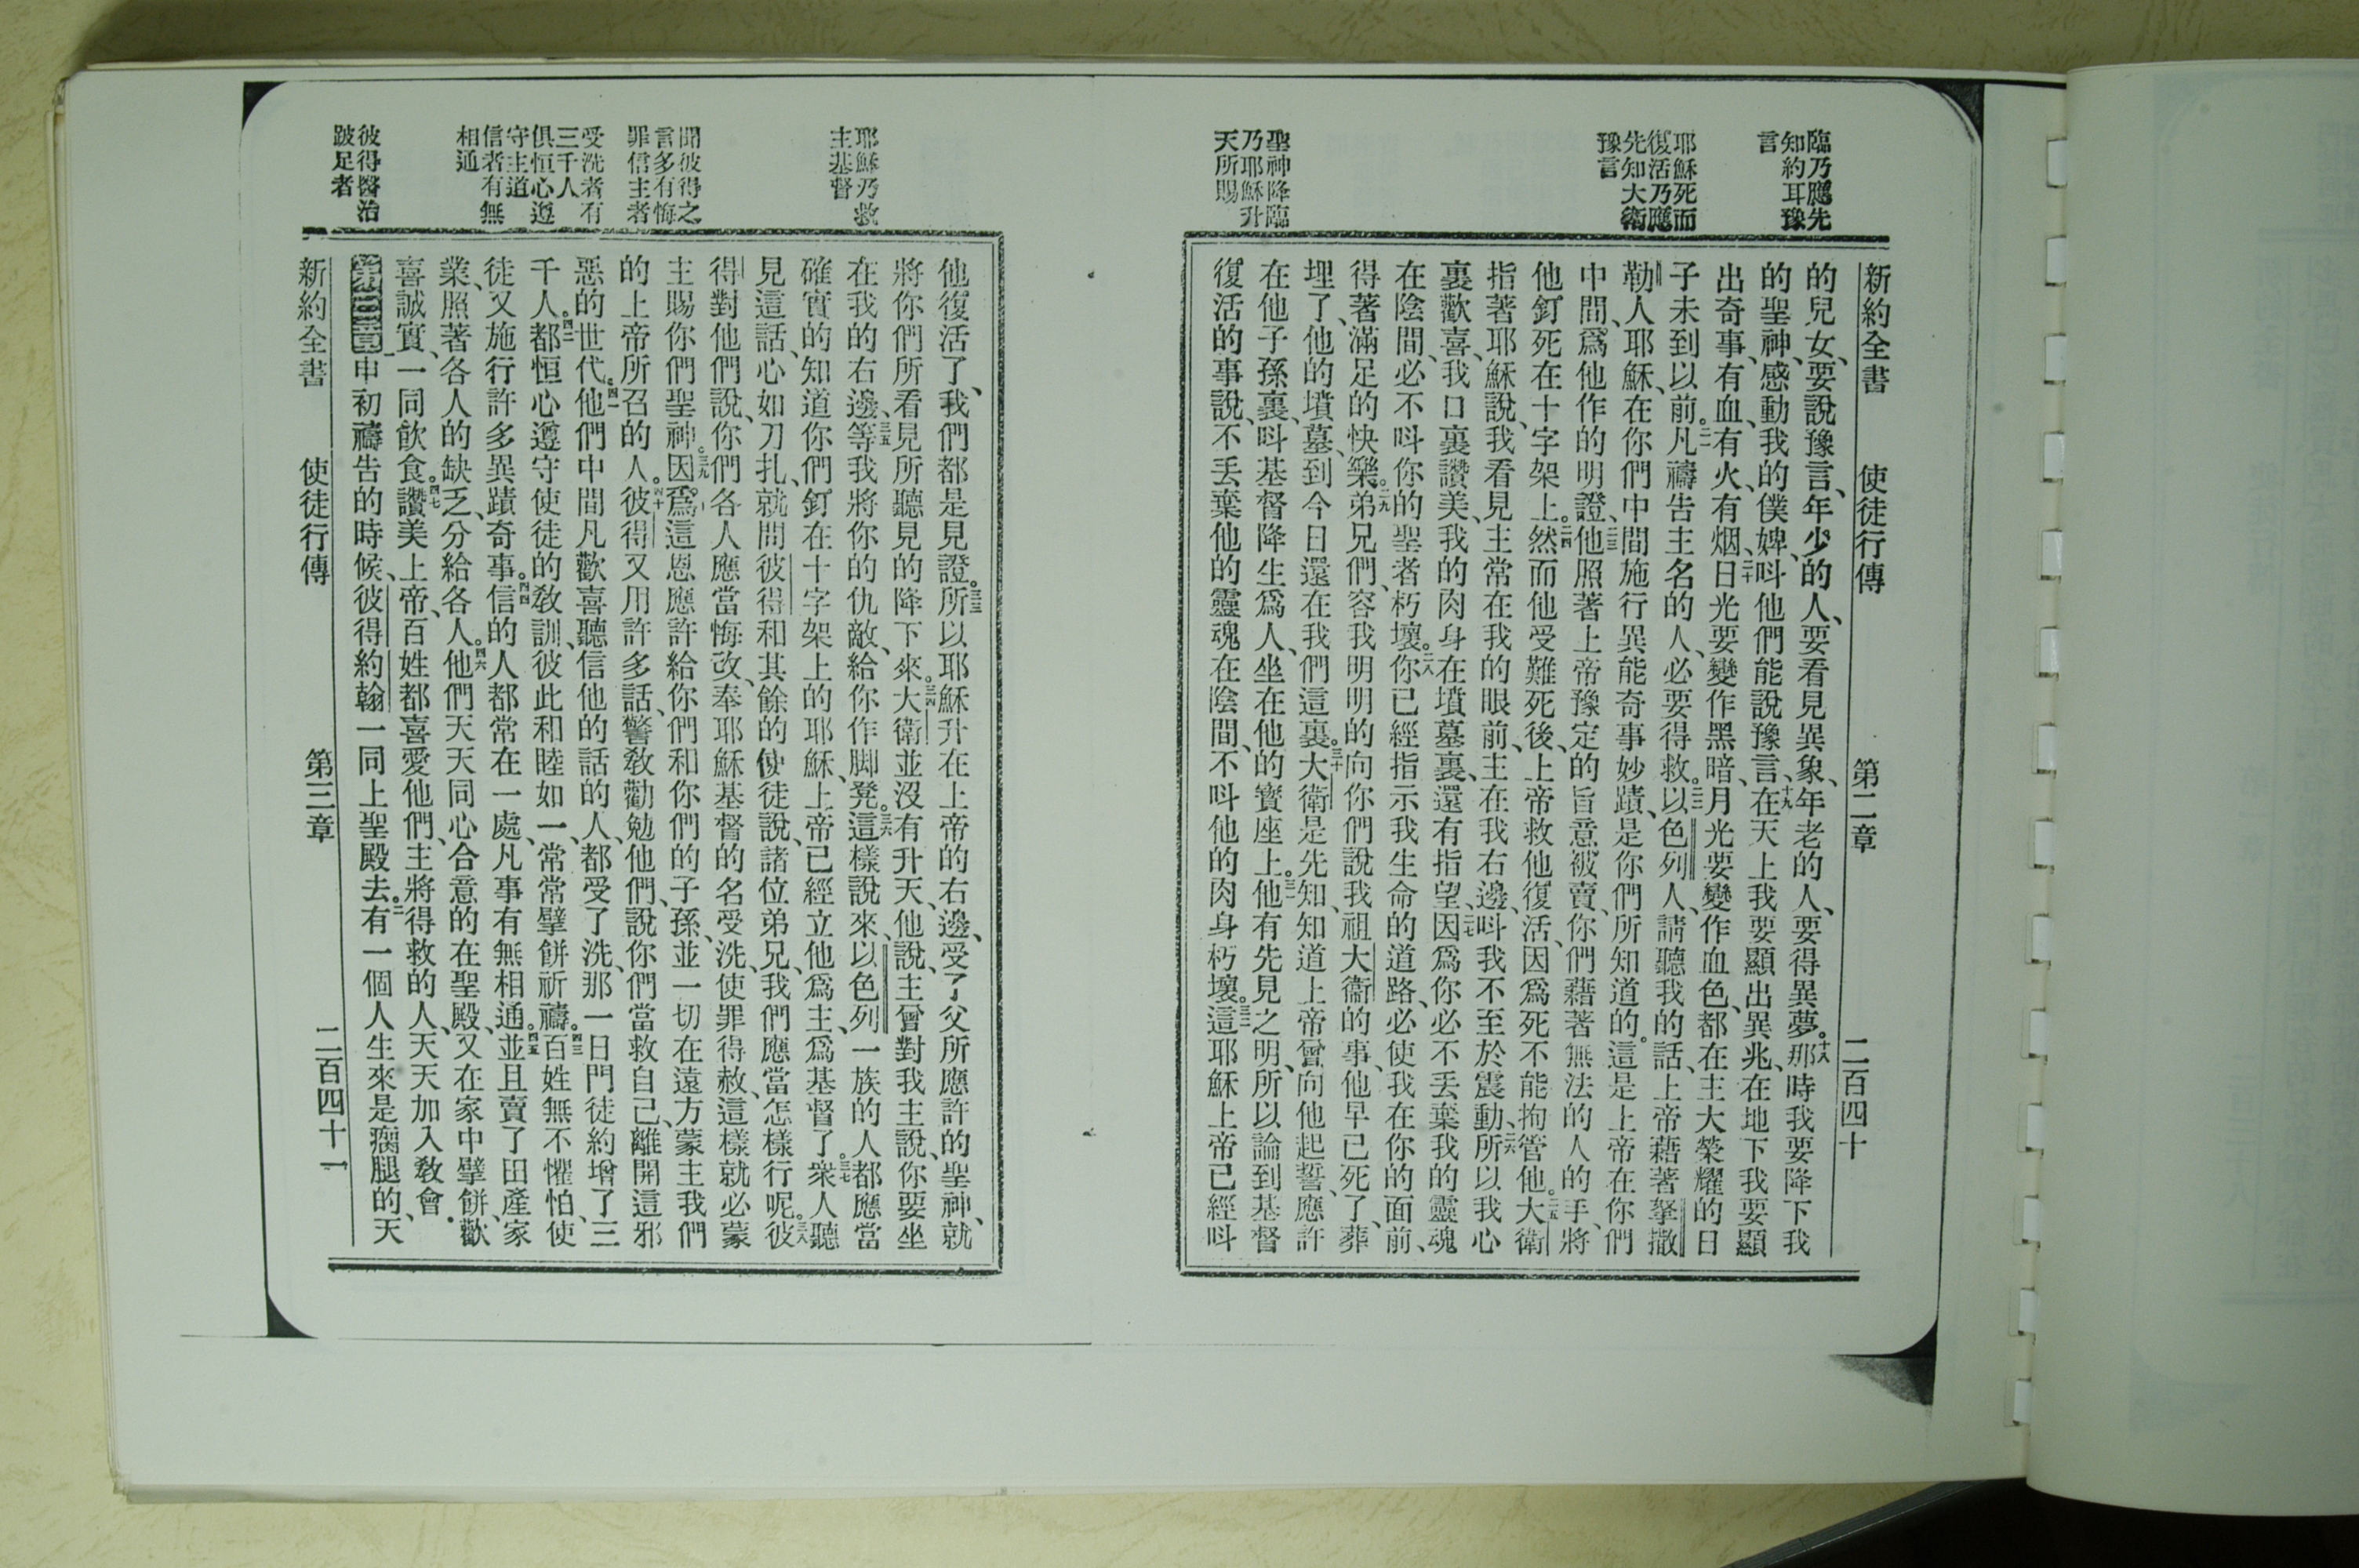 臨乃應先
知約耳豫
言
耶穌死而
復活乃應
先知大衛
豫言
聖神降臨
乃耶穌升
天所賜
新約全書 使徒行傳 第二章 二百四十
的兒女、要說豫言、年少的人、要看見異象、年老的人、要得異夢。十八那時我要降下我
的聖神、感動我的僕婢、呌他們能說豫言、十九在天上我要顯出異兆、在地下我要顯
出奇事、有血、有火、有烟、二十日光要變作黑暗、月光要變作血色、都在主大榮耀的日
子未到以前。二一凡禱告主名的人、必要得救。二二以色列人、請聽我的話、上帝藉著拏撒
勒人耶穌、在你們中間施行異能奇事妙蹟、是你們所知道的。這是上帝在你們
中間、爲他作的明證、二三他照著上帝豫定的旨意被賣、你們藉著無法的人的手、將
他釘死在十字架上。二四然而他受難死後、上帝救他復活、因爲死不能拘管他。二五大衛
指著耶穌說、我看見主常在我的眼前、主在我右邊、呌我不至於震動、二六所以我心
裏歡喜、我口裏讚美、我的肉身在墳墓裏、還有指望、二七因爲你必不丟棄我的靈魂
在陰間、必不呌你的聖者朽壞。二八你已經指示我生命的道路、必使我在你的面前、
得著滿足的快樂。二九弟兄們、容我明明的向你們說我祖大衞的事、他早已死了、葬
埋了、他的墳墓、到今日還在我們這裏。三十大衛是先知、知道上帝曾向他起誓、應許
在他子孫裏、呌基督降生爲人、坐在他的寶座上。三一他有先見之明、所以論到基督
復活的事說、不丟棄他的靈魂在陰間、不呌他的肉身朽壞。三二這耶穌上帝已經呌
耶穌乃救
主基督
聞彼得之
言多有悔
罪信主者
受洗者有
三千人
俱恒心遵
守主道
信者有無
相通
彼得醫治
跛足者
他復活了、我們都是見證。三三所以耶穌升在上帝的右邊、受了父所應許的聖神、就
將你們所看見所聽見的降下來。三四大衛並沒有升天、他說、主曾對我主說、你要坐
在我的右邊、三五等我將你的仇敵、給你作脚凳。三六這樣說來、以色列一族的人、都應當
確實的知道你們釘在十字架上的耶穌、上帝已經立他爲主、爲基督了。三七衆人聽
見這話、心如刀扎、就問彼得和其餘的使徒說、諸位弟兄、我們應當怎樣行呢。三八彼
得對他們說、你們各人應當悔改、奉耶穌基督的名受洗、使罪得赦、這樣就必蒙
主賜你們聖神。三九因爲這恩應許給你們和你們的子孫、並一切在遠方蒙主我們
的上帝所召的人。四十彼得又用許多話、警敎勸勉他們、說你們當救自己、離開這邪
惡的世代。四一他們中間凡歡喜聽信他的話的人、都受了洗、那一日門徒約增了三
千人。四二都恒心遵守使徒的敎訓、彼此和睦如一、常常擘餅祈禱。四三百姓無不懼怕、使
徒又施行許多異蹟奇事。四四信的人都常在一處、凡事有無相通。四五並且賣了田產家
業、照著各人的缺乏、分給各人。四六他們天天同心合意的在聖殿、又在家中擘餅、歡
喜誠實、一同飮食。四七讚美上帝、百姓都喜愛他們、主將得救的人、天天加入敎會。
第三章 申初禱告的時候、彼得約翰一同上聖殿去。二有一個人生來是瘸腿的、天
新約全書 使徒行傳 第三章 二百四十一